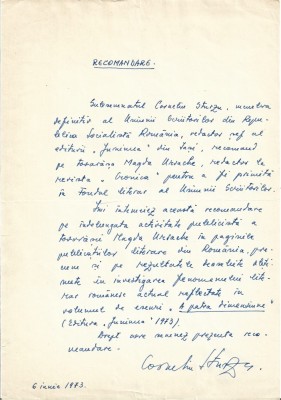 RECOMANDARE.
Subsemnatul Corneliu Sturzu, membru
definitiv al Uniunii Scriitorilor din Repu-
blica Socialistă România, redactor șef al
editurii „Junimea" din Iași, recomand
pe tovarășa Magda Ursache, redactor la
revista „Cronica" pentru a fi primită
în Fondul literar al Uniunii Scriitorilor.
Îmi întemeiez această recomandare
pe îndelungata activitate publicistică a
tovarășei Magda Ursache în paginile
publicațiilor literare din România, pre-
cum și pe rezultatele deosebite obți-
nute în investigarea fenomenului lite-
rar românesc actual reflectate în
volumul de eseuri „A patra dimensiune"
(Editura „Junimea" 1973).
Drept care susțin prezenta reco-
mandare.
Corneliu Sturzu
6 iunie 1973.